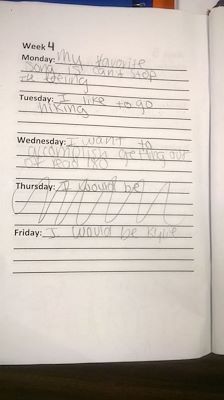 Week 4
Monday: My favorite
song is can't stop
the feeling
Tuesday: I like to go
hiking
Wednesday: I want to
accomplish getting our
of read 180
Thursday: I would be
Friday: I would be kylie